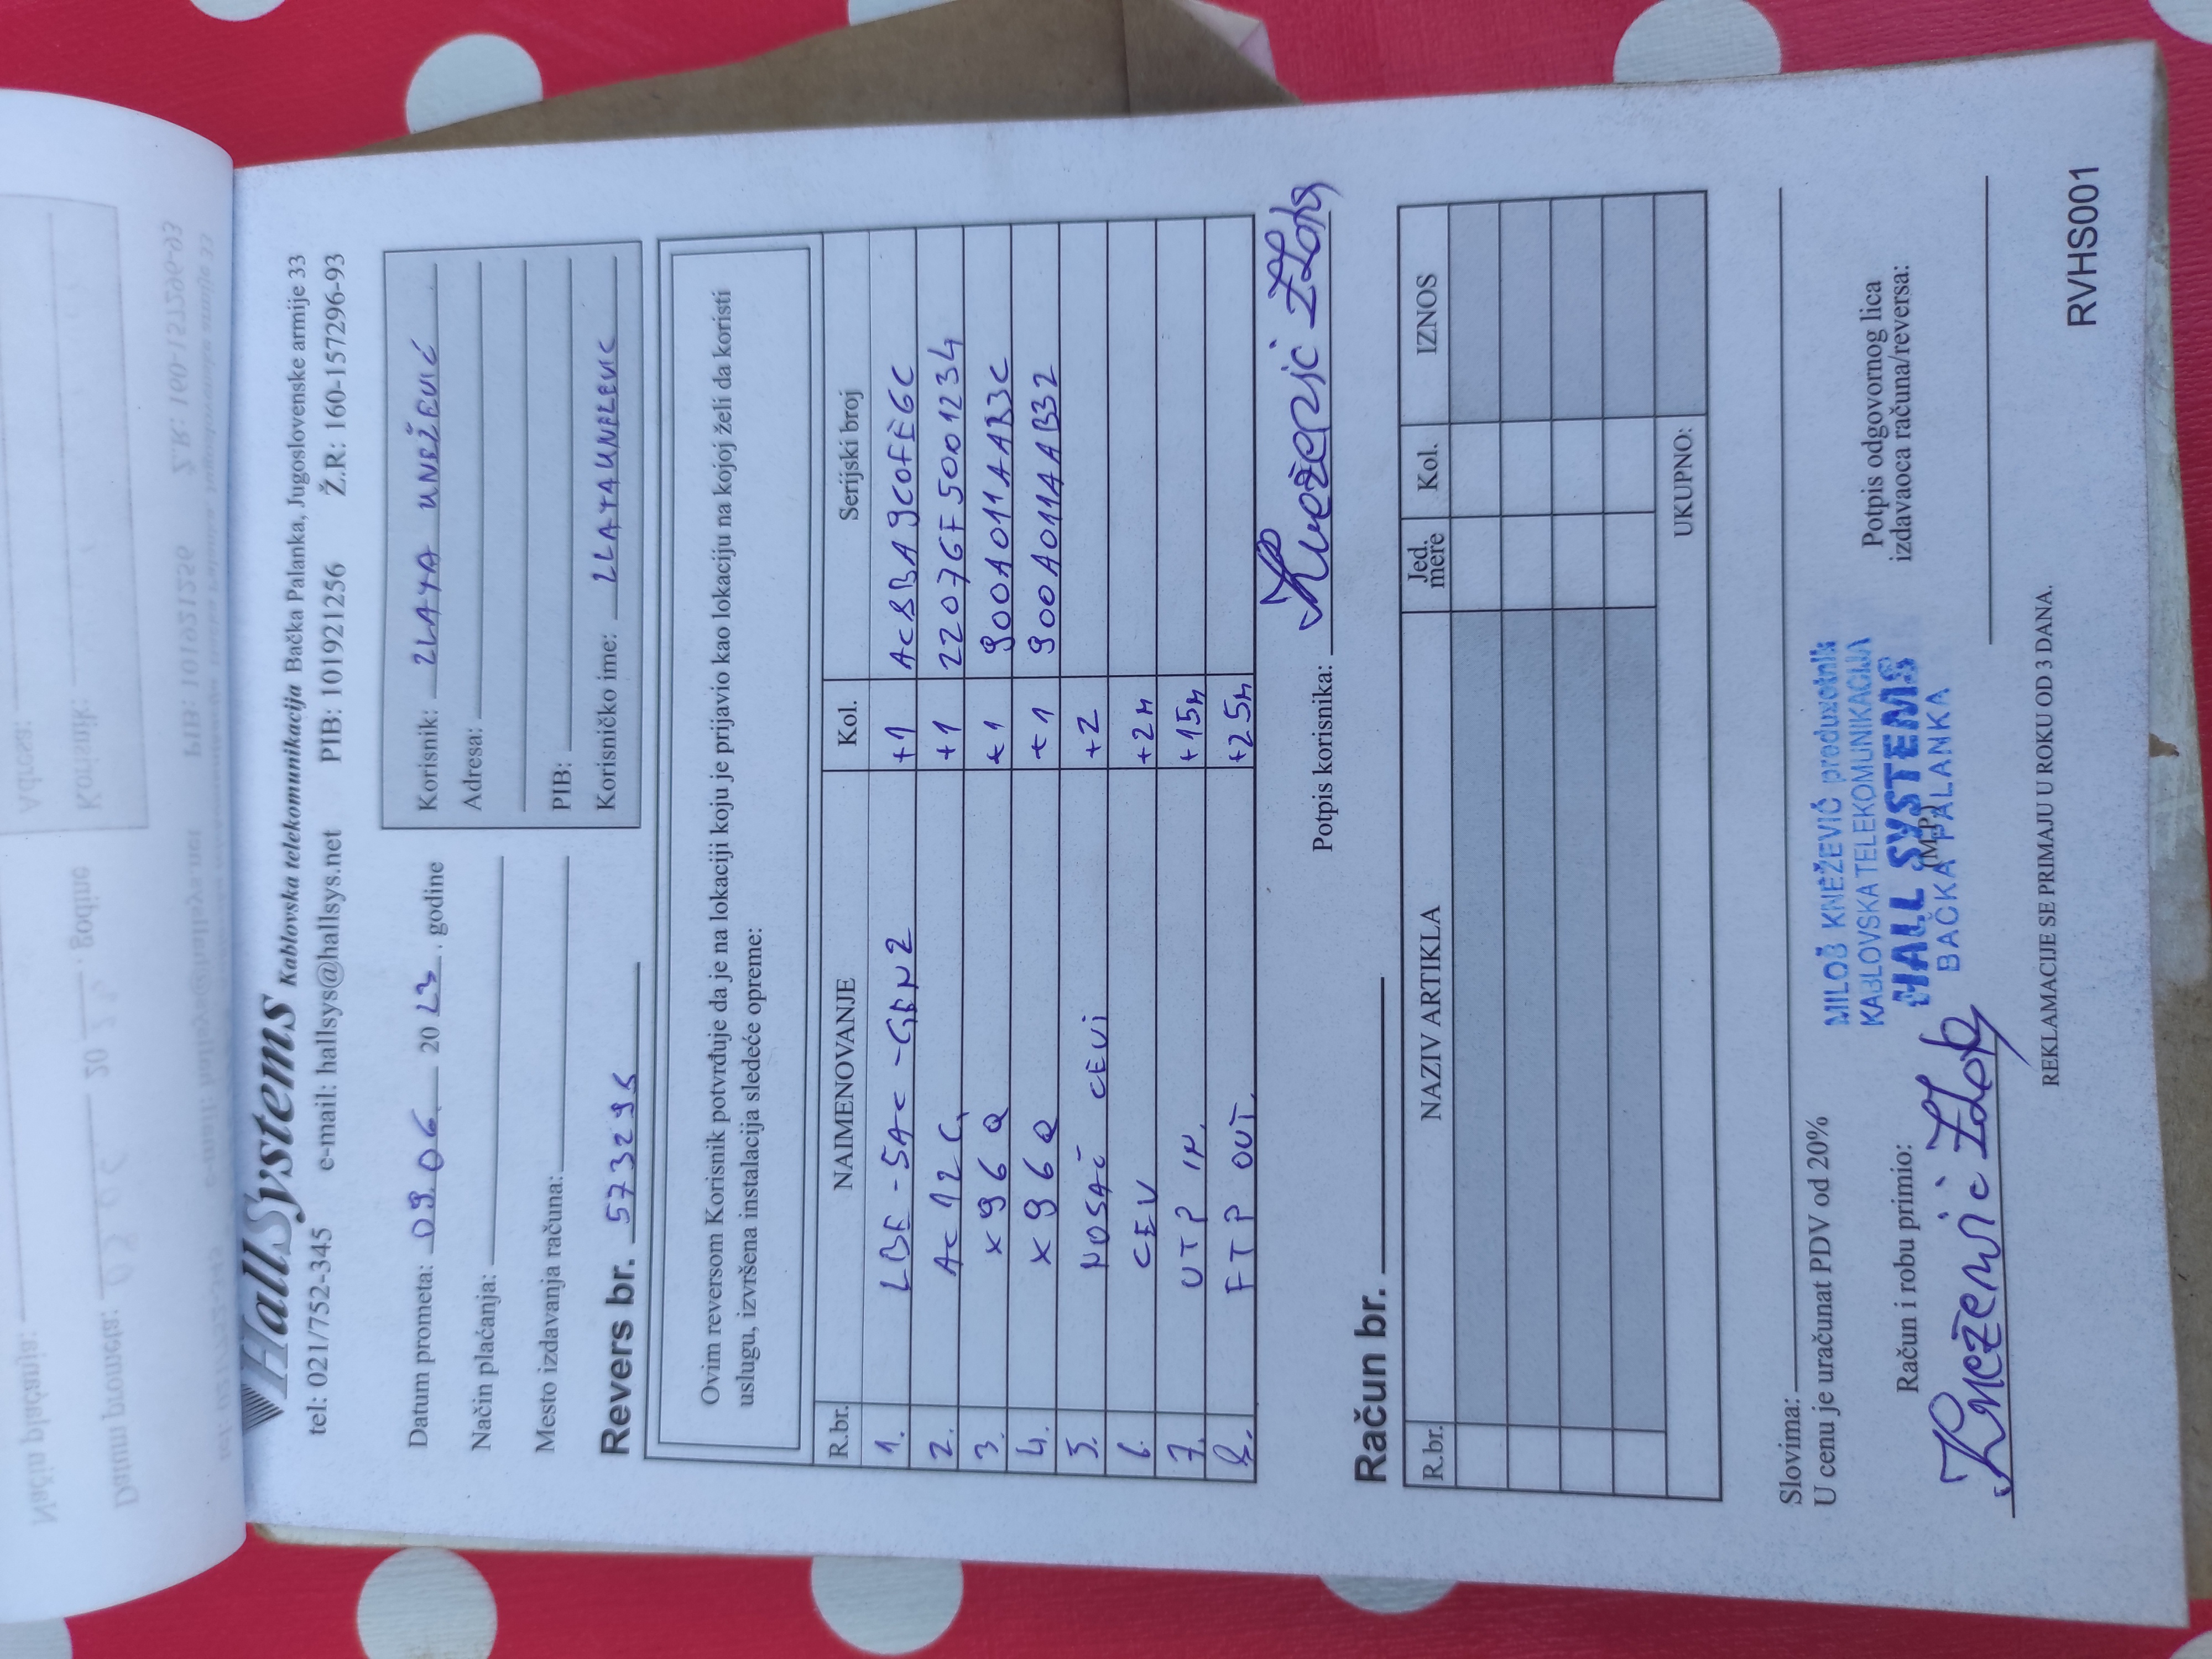 HallSystems Kablovska telekomunikacija Bačka Palanka, Jugoslovenske armije 33
tel: 021/752-345 e-mail: hallsys@hallsys.net PIB: 101921256 Ž.R: 160-157296-93
Datum prometa: 09.06 2023. godine
Način plaćanja:
Mesto izdavanja računa:
Revers br. 573295
Korisnik: ZLATA KNEŽEVIĆ
Adresa:
PIB:
Korisničko ime: ZLATAKNEZEVIC
Ovim reversom Korisnik potvrđuje da je na lokaciji koju je prijavio kao lokaciju na kojoj želi da koristi
uslugu, izvršena instalacija sledeće opreme:
R.br. NAIMENOVANJE Kol. Serijski broj
1. LBE-5AC-GEN2 +1 AC8BA9C0FE6C
2. AC12G +1 2207GF5001234
3. X96Q +1 900A011AAB3C
4. X96Q +1 900A011AAB32
5. NOSAČ CEVI +2
6. CEV +2m
7. UTP IN. +15m
8. FTP OUT. +25m
Potpis korisnika: Knežević Zlata
Račun br.
R.br. NAZIV ARTIKLA Jed. mere Kol. IZNOS
UKUPNO:
Slovima:
U cenu je uračunat PDV od 20%
Račun i robu primio:
Knežević Zlata
MILOŠ KNEŽEVIĆ preduzetnik
KABLOVSKA TELEKOMUNIKACIJA
HALL SYSTEMS
(M.P.)
BAČKA PALANKA
Potpis odgovornog lica
izdavaoca računa/reversa:
REKLAMACIJE SE PRIMAJU U ROKU OD 3 DANA.
RVHS001